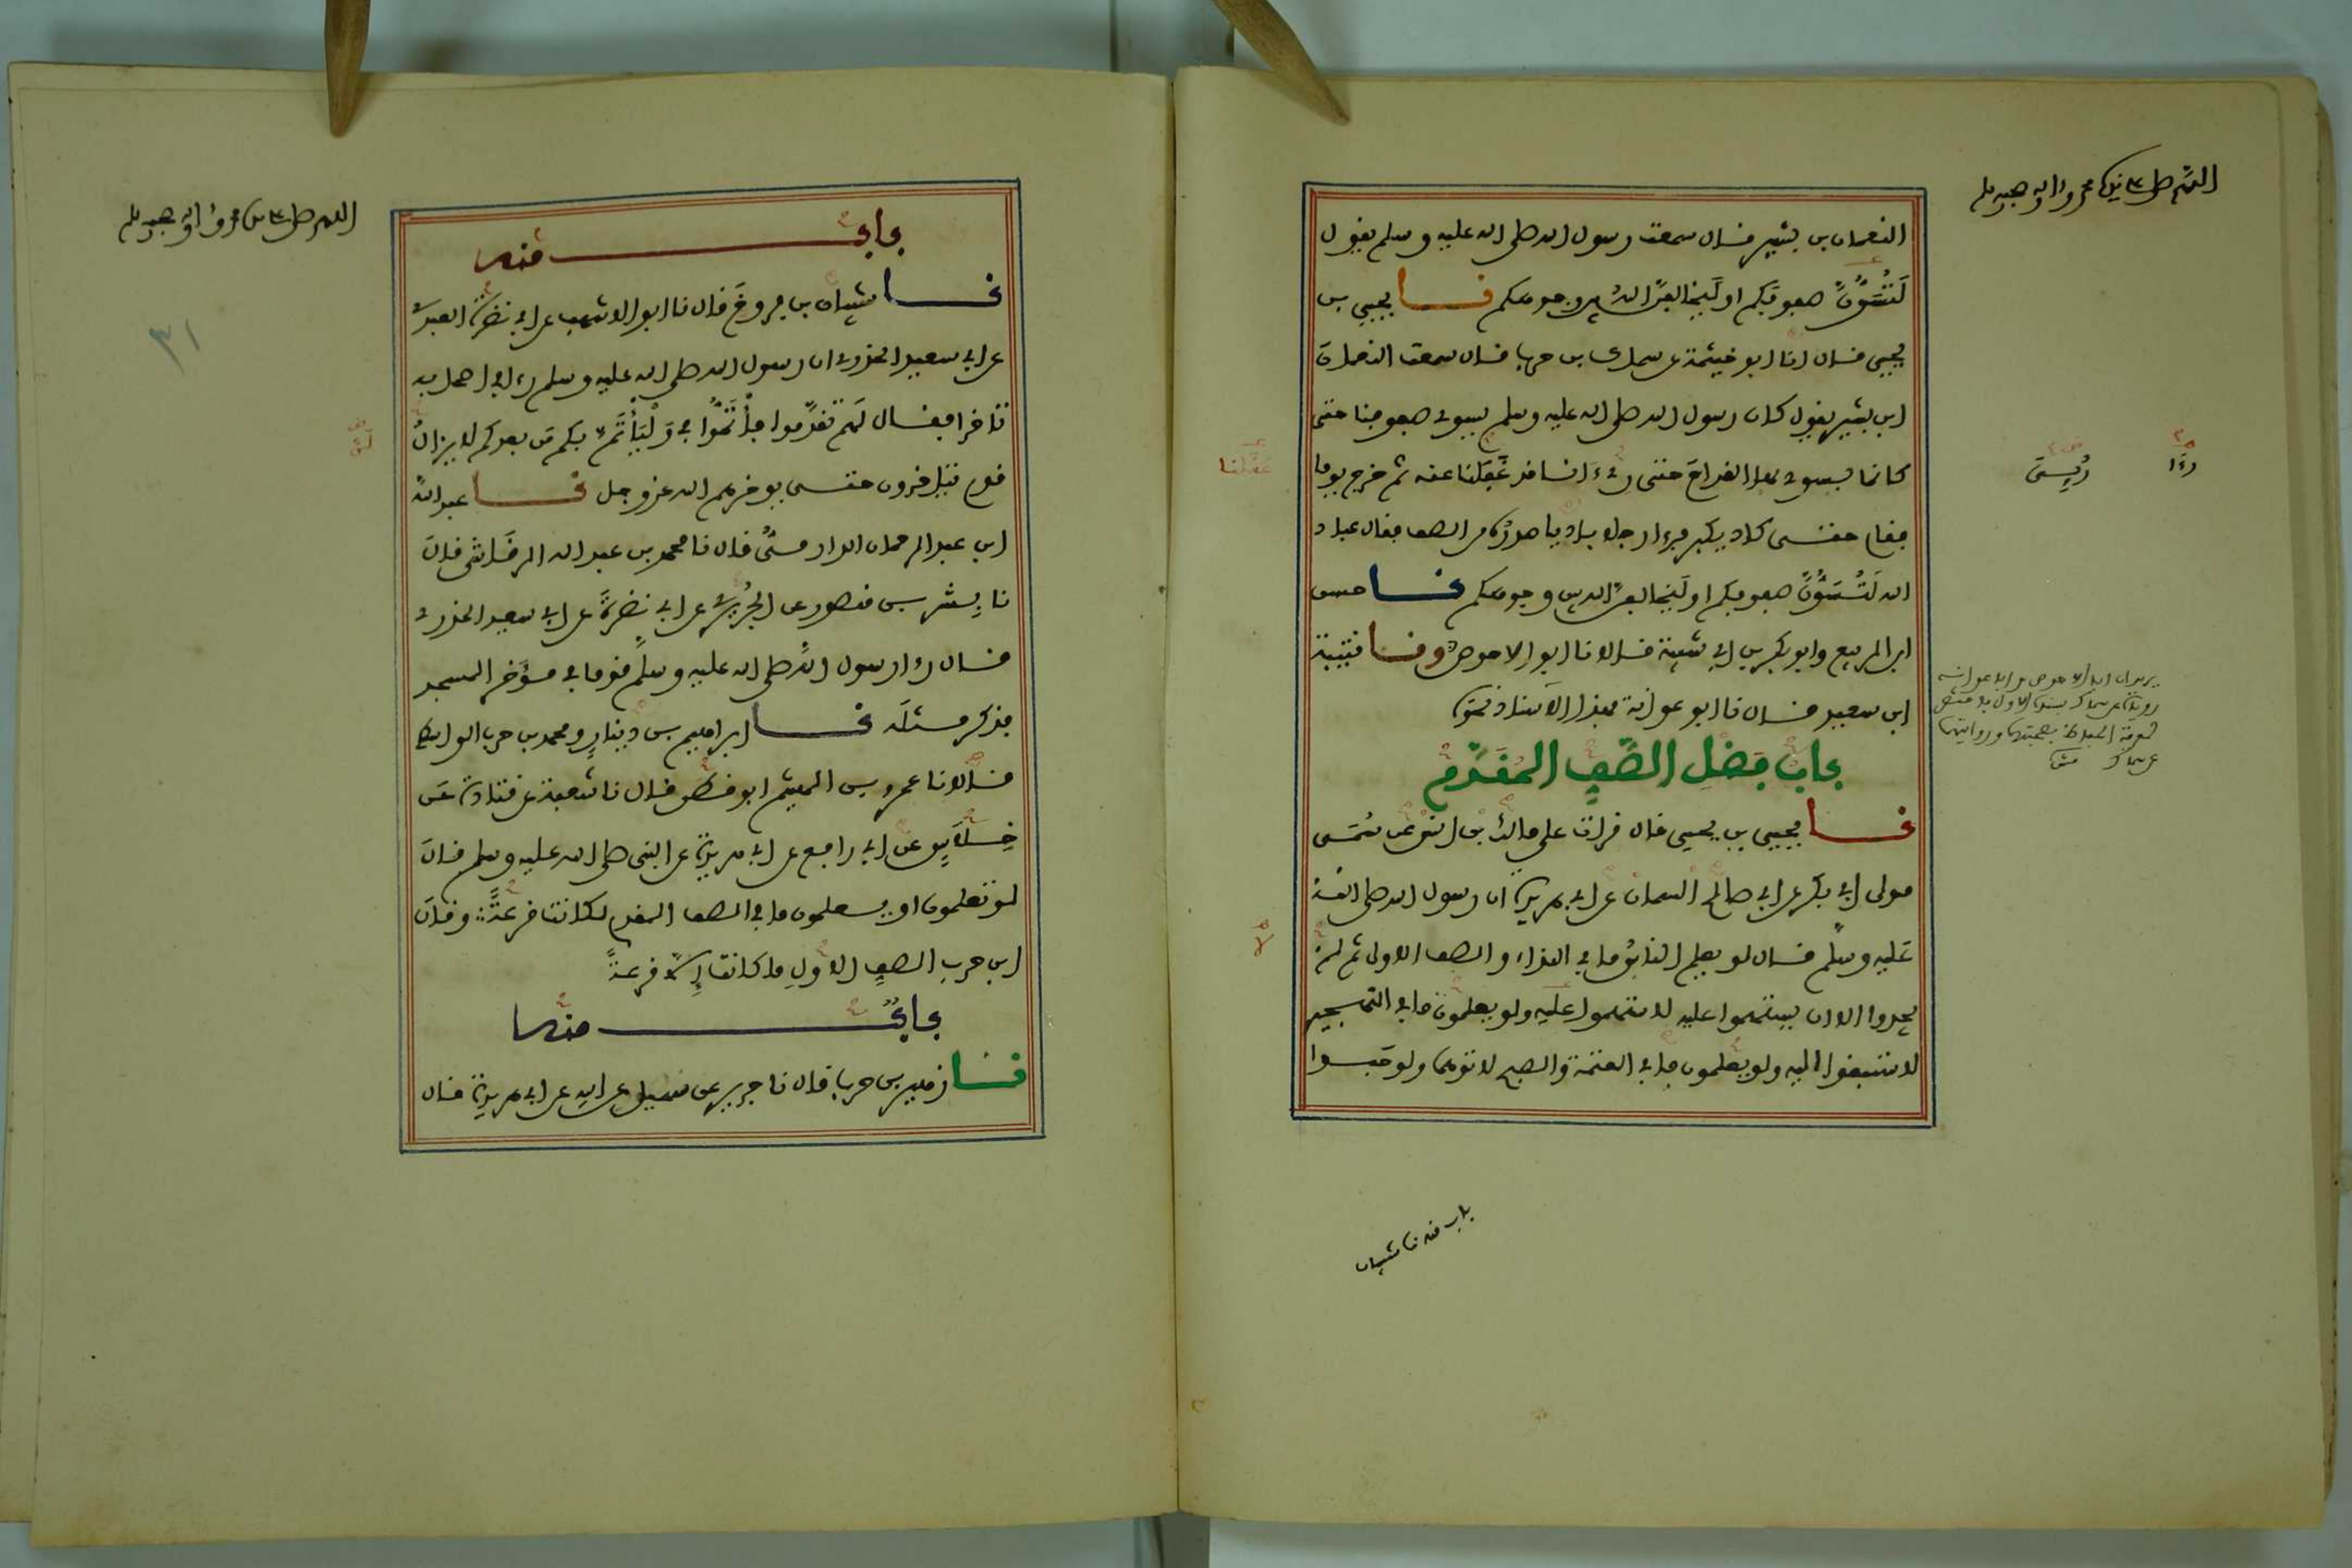 اللهم صل على سيدنا محمد وءاله وصحبه وسلم
النعمان بن بشير قال سمعت رسول الله صلى الله عليه وسلم يقول
لَتُسَوُّنَّ صفوفكم او لَيُخالفنّ الله بين وجوهكم نا يحيى بن
يحيى قال انا ابو خيثمة عن سماك بن حرب قال سمعت النعمان
ابن بشير يقول كان رسول الله صلى الله عليه وسلم يسوي صفوفنا حتى
كانما يسوي بها القداح حتى رءى انا قد عَقَلنا عنه ثم خرج يوما
فقام حتى كاد يكبر فرءا رجلا باديا صدره من الصف فقال عباد
الله لَتُسَوُّنَّ صفوفكم او لَيُخالفنّ الله بين وجوهكم نا حسن
ابن الربيع وابو بكر بن ابي شيبة قالا نا ابو الاحوص ونا قتيبة
ابن سعيد قال نا ابو عوانة بهذا الاسناد نحوه
باب فضل الصف المقدم
نا يحيى بن يحيى قال قرات على مالك بن انس عن سُمَي
مولى ابي بكر عن ابي صالح السمان عن ابي هريرة ان رسول الله صلى الله
عليه وسلم قال لو يعلم الناس ما في النداء والصف الاول ثم لم
يجدوا الا ان يستهموا عليه لاستهموا عليه ولو يعلمون ما في التهجير
لاستبقوا اليه ولو يعلمون ما في العتمة والصبح لاتوهما ولو حَبوا
رءا
عقلنا
باب منه نا شيبان
اللهم صل على سيدنا محمد وءاله وصحبه وسلم
٣١
باب منه
نا شيبان بن فروخ قال نا ابو الاشهب عن ابي نضرة العبدي
عن ابي سعيد الخدري ان رسول الله صلى الله عليه وسلم رءا في اصحابه
تاخرا فقال لهم تقدموا فأْتَمُّوا بي وَلْيَأْتَمَّ بكم من بعدكم لا يزال
قوم يتاخرون حتى يوخرهم الله عز وجل نا عبد الله
ابن عبد الرحمان الدارمي قال نا محمد بن عبد الله الرقاشي قال
نا بشر بن منصور عن الجُرَيري عن ابي نضرة عن ابي سعيد الخدري
قال رءا رسول الله صلى الله عليه وسلم قوما في مؤخر المسجد
فذكر مثله نا ابراهيم بن دينار ومحمد بن حرب الواسطي
قالا نا عمرو بن الهيثم ابو قطن قال نا شعبة عن قتادة عن
خِلَاسٍ عن ابي رافع عن ابي هريرة عن النبي صلى الله عليه وسلم قال
لو تعلمون او يعلمون ما في الصف المقدم لكانت قرعةً وقال
ابن حرب الصف الاول ما كانت إلّا قرعةً
باب منه
نا زهير بن حرب قال نا جرير عن سهيل عن ابيه عن ابي هريرة قال